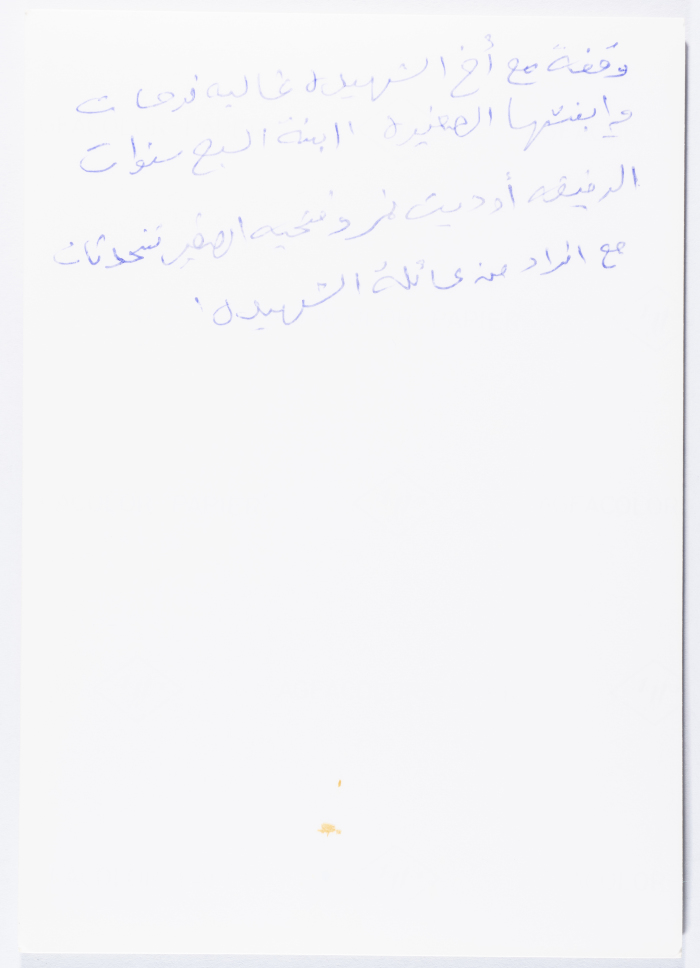 وقفة مع أخ الشهيده غاليه فرحات
وابنتها الصغيره ابنة السبع سنوات
الرفيقه أوديت نمر وفتحيه الصغير تتحدثان
مع افراد من عائلة الشهيده.